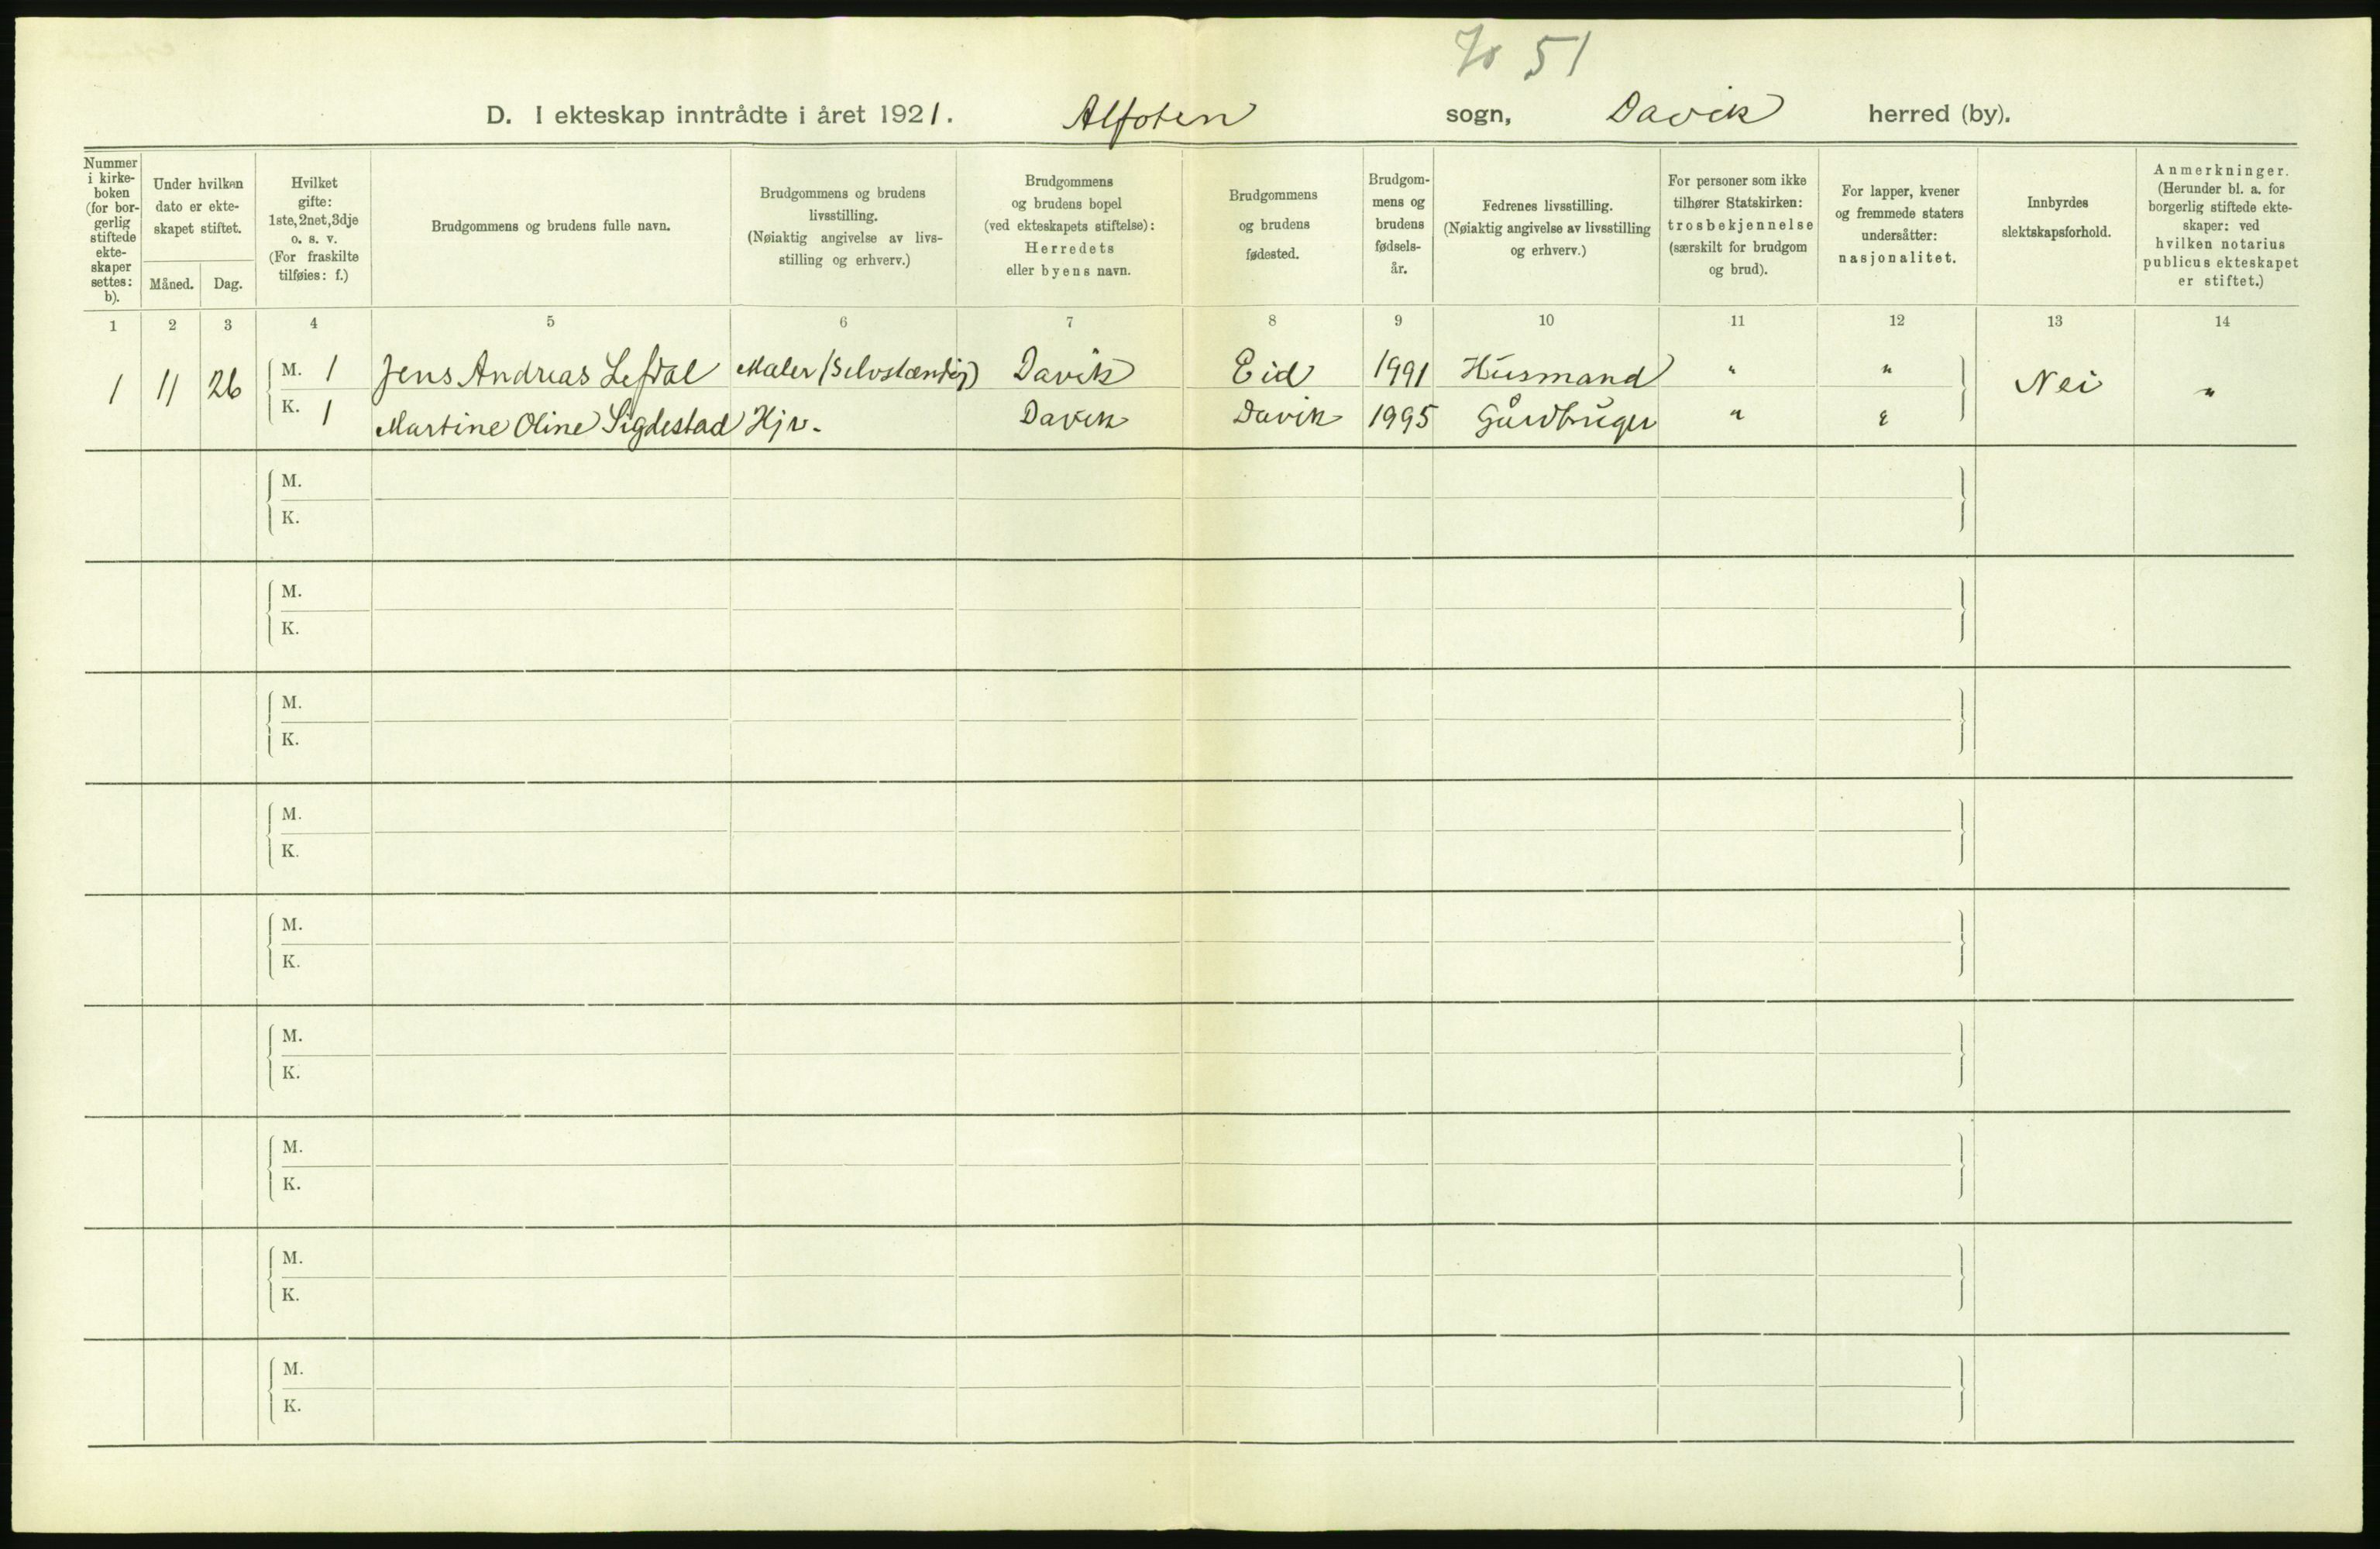 51
D. I ekteskap inntrådte i året 1921. Alfoten sogn, Davik herred (by).
Nummer i kirke-boken (for bor-gerlig stiftede ekte-skaper settes: b).
Under hvilken dato er ekte-skapet stiftet.
Måned. Dag.
Hvilket gifte: 1ste, 2net, 3dje o. s. v. (For fraskilte tilføies: f.)
Brudgommens og brudens fulle navn.
Brudgommens og brudens livsstilling. (Nøiaktig angivelse av livs-stilling og erhverv.)
Brudgommens og brudens bopel (ved ekteskapets stiftelse): Herredets eller byens navn.
Brudgommens og brudens fødested.
Brudgom-mens og brudens fødsels-år.
Fedrenes livsstilling. (Nøiaktig angivelse av livsstilling og erhverv.)
For personer som ikke tilhører Statskirken: trosbekjennelse (særskilt for brudgom og brud).
For lapper, kvener og fremmede staters undersåtter: nasjonalitet.
Innbyrdes slektskapsforhold.
Anmerkninger. (Herunder bl. a. for borgerlig stiftede ekte-skaper: ved hvilken notarius publicus ekteskapet er stiftet.)
1 2 3 4 5 6 7 8 9 10 11 12 13 14
1 11 26 M. 1 Jens Andreas Lefdal Maler (Selvstændig) Davik Eid 1991 Husmand " " Nei "
K. 1 Martine Oline Sigdestad Hjv. Davik Davik 1995 Gårdbruger " "
M.
K.
M.
K.
M.
K.
M.
K.
M.
K.
M.
K.
M.
K.
M.
K.
M.
K.